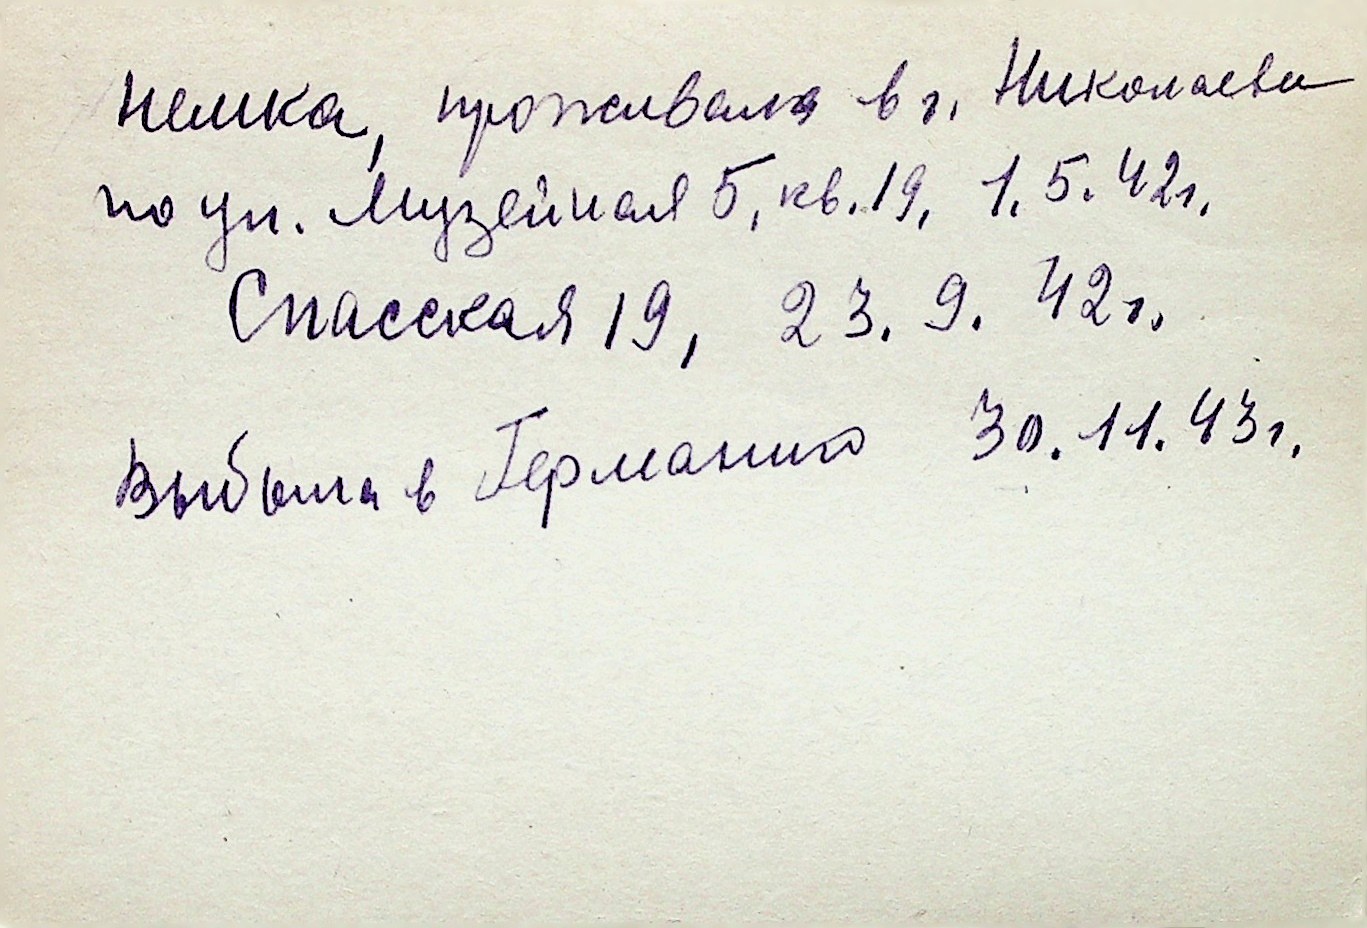 немка, проживала в г. Николаеве
по ул. Музейная 5, кв. 19, 1.5.42г.
Спасская 19, 23.9.42г.
Выбыла в Германию 30.11.43г.